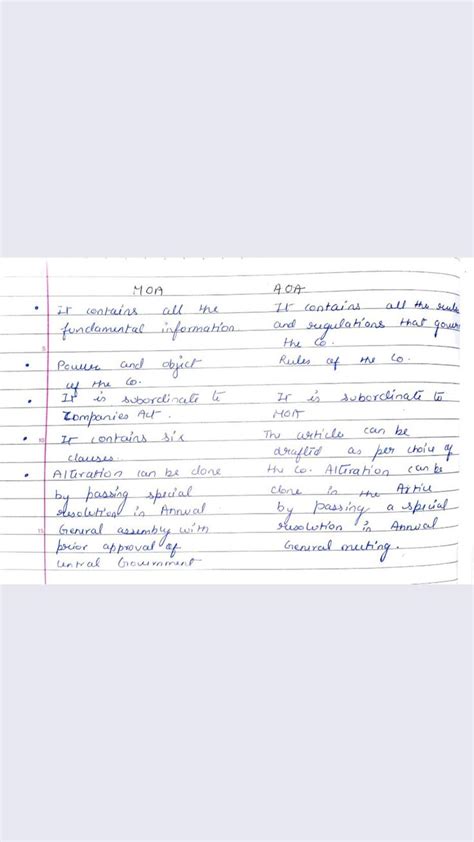 MOA AOA
• It contains all the It contains all the rule
fundamental information. and regulations that gover
the Co.
• Power and object Rules of the Co.
of the Co.
• It is subordinate to It is subordinate to
Companies Act. MOA
• It contains six The article can be
clauses. drafted as per choice of
• Alteration can be done the Co. Alteration can be
by passing special done in the Artice
resolution in Annual by passing a special
General assembly with resolution in Annual
prior approval of General meeting.
Central Government